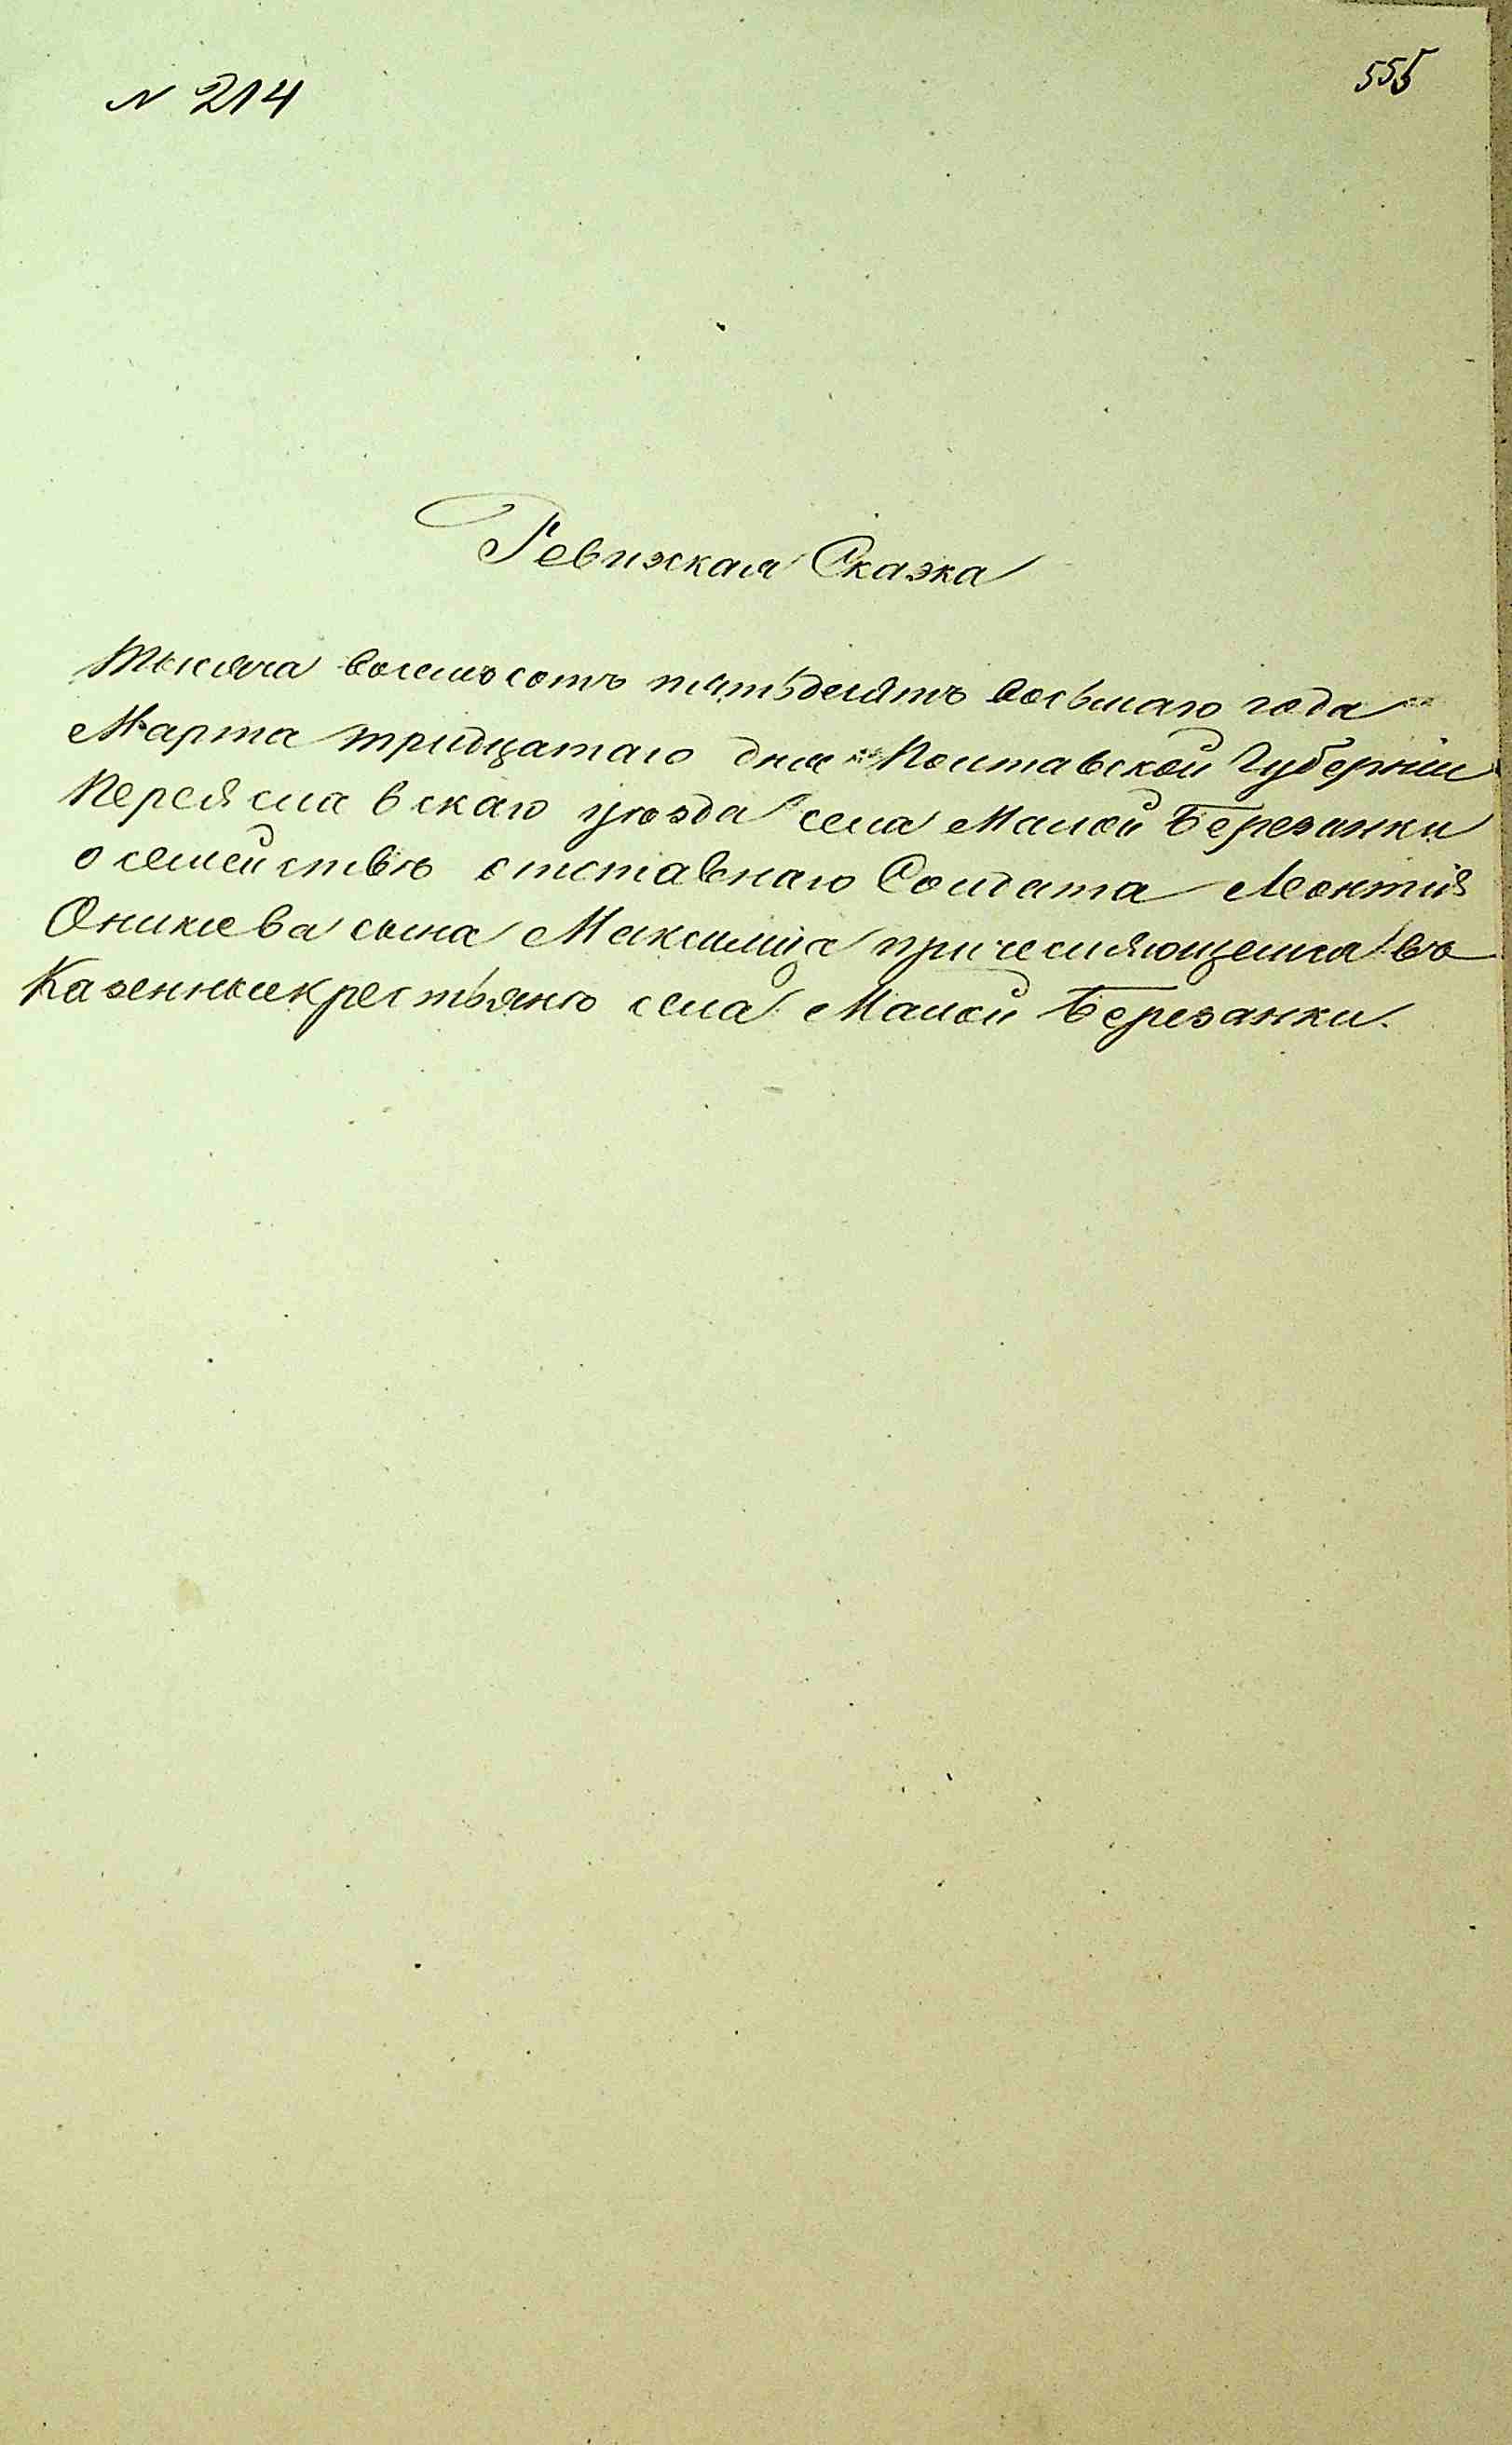 N 214
555
Ревижская Сказка
Тысяча восемъсотъ пятьдесятъ восьмаго года
Марта тридцатаго дня Полтавской Губерніи
Переяславскаго уѣзда села Малой Березанки
о семействѣ отставнаго Солдата Леонтія
Оникіева сына причесляющемся въ
Казенныекрестьяне села Малой Березанки.